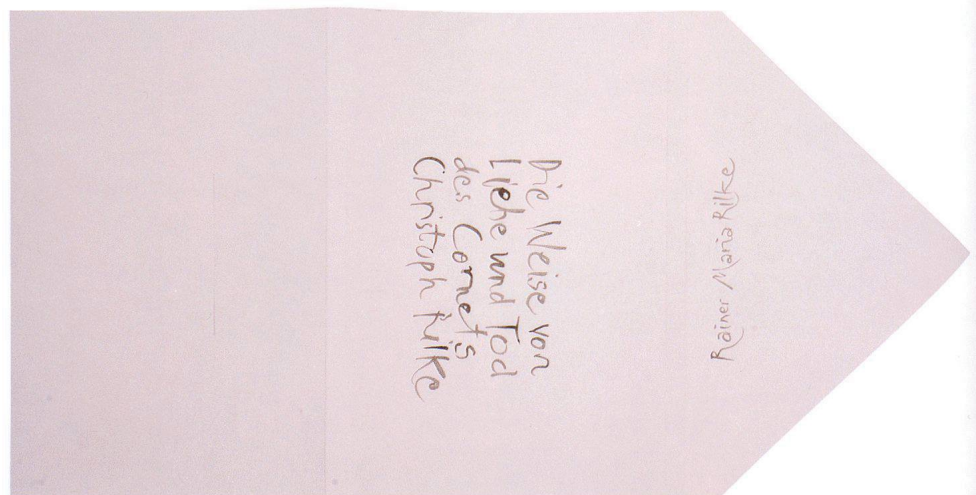 Rainer Maria Rilke
Die Weise von
Liebe und Tod
des Cornets
Christoph Rilke